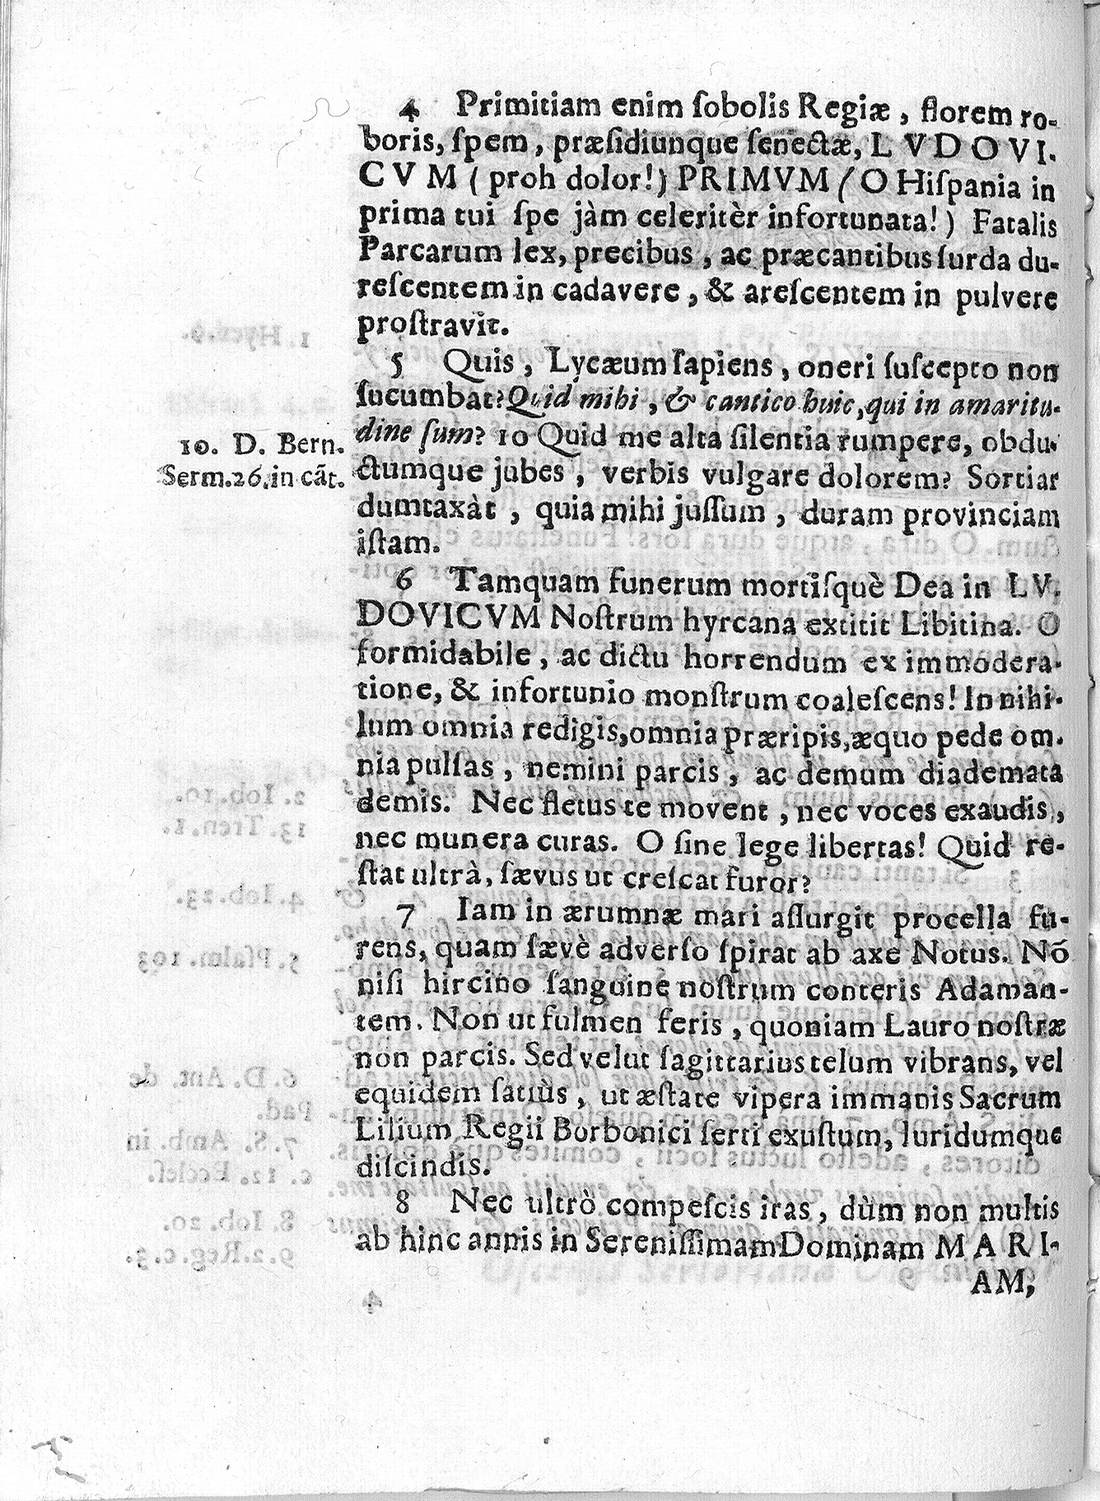 4 Primitiam enim ſobolis Regiæ, florem ro-
boris, ſpem, præſidiunque ſenectæ, LVDOVI-
CVM (proh dolor!) PRIMVM (O Hiſpania in
prima tui ſpe jàm celeritèr infortunata!) Fatalis
Parcarum lex, precibus, ac præcantibus ſurda du-
reſcentem in cadavere, & areſcentem in pulvere
proſtravit.
5 Quis, Lycæum ſapiens, oneri ſuſcepto non
ſucumbat? Quid mihi, & cantico huic, qui in amaritu-
dine ſum? 10 Quid me alta ſilentia rumpere, obdu-
10. D. Bern.
Serm.26.in cãt.
ctumque jubes, verbis vulgare dolorem? Sortiar
dumtaxàt, quia mihi juſſum, duram provinciam
iſtam.
6 Tamquam funerum mortiſquè Dea in LV-
DOVICVM Noſtrum hyrcana extitit Libitina. O
formidabile, ac dictu horrendum ex immodera-
tione, & infortunio monſtrum coaleſcens! In nihi-
lum omnia redigis, omnia præripis, æquo pede om-
nia pulſas, nemini parcis, ac demum diademata
demis. Nec fletus te movent, nec voces exaudis,
nec munera curas. O ſine lege libertas! Quid re-
ſtat ultrà, ſævus ut creſcat furor?
7 Iam in ærumnæ mari aſſurgit procella fu-
rens, quam ſævè adverſo ſpirat ab axe Notus. Nõ
niſi hircino ſanguine noſtrum conteris Adaman-
tem. Non ut fulmen feris, quoniam Lauro noſtræ
non parcis. Sed velut ſagittarius telum vibrans, vel
equidem ſatiùs, ut æſtate vipera immanis Sacrum
Lilium Regii Borbonici ſerti exuſtum, luridumque
diſcindis.
8 Nec ultrò compeſcis iras, dùm non multis
ab hinc annis in Sereniſſimam Dominam MARI-
AM,